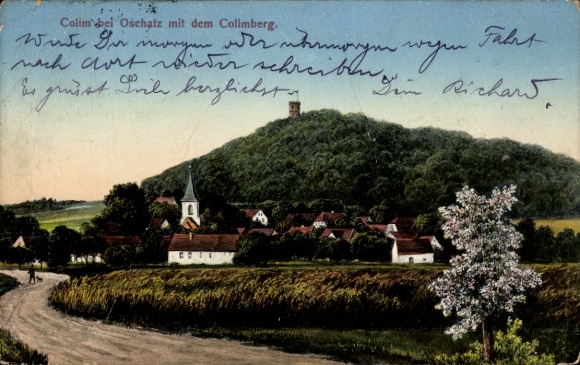 Collm bei Oschatz mit dem Collmberg.
Werde Dir morgen oder übermorgen wegen Fahrt
nach dort wieder schreiben
Es grüsst Dich herzlichst Dein Richard,